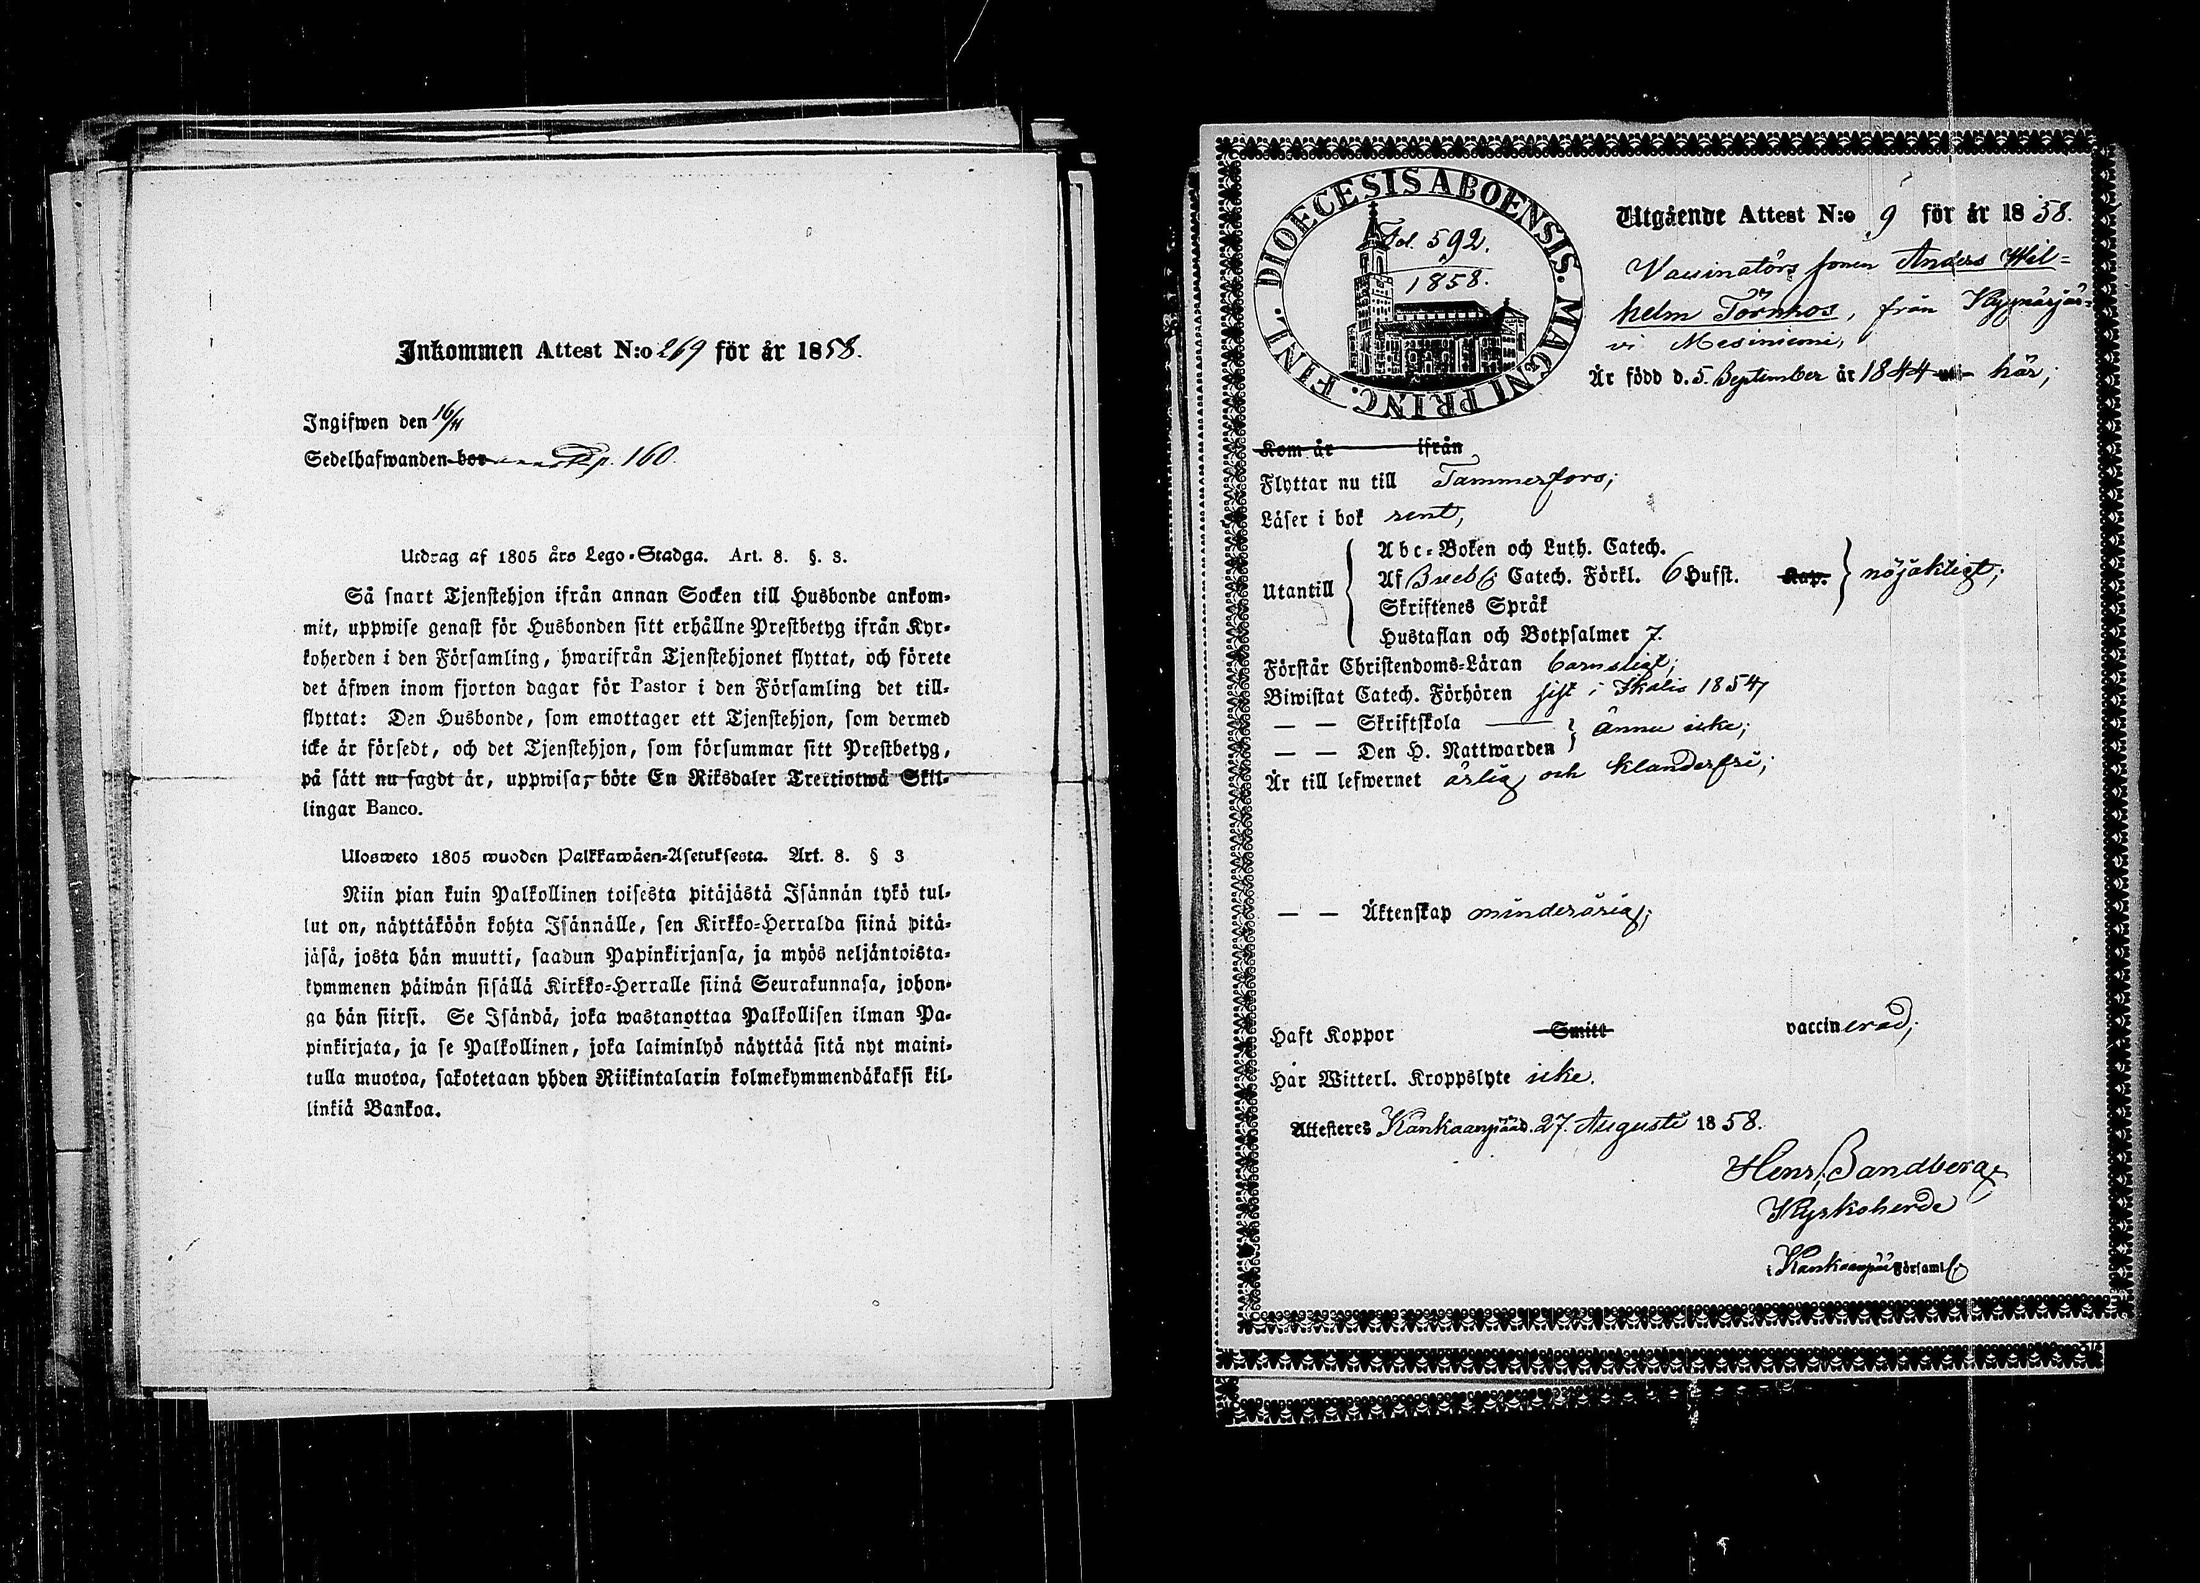 Inkommen Attest N:o 269 för år 1858.
Ingifwen den 16/11
Sedelhafwanden bor p. 160.
Utdrag af 1805 års Lego-Stadga. Art. 8. §. 3.
Så snart Tjenstehjon ifrån annan Socken till Husbonde ankom-
mit, uppwise genast för Husbonden sitt erhållne Prestbetyg ifrån Kyr-
koherden i den Församling, hwarifrån Tjenstehjonet flyttat, och förete
det äfwen inom fjorton dagar för Pastor i den Församling det till-
flyttat: Den Husbonde, som emottager ett Tjenstehjon, som dermed
icke är försedt, och det Tjenstehjon, som försummar sitt Prestbetyg,
på sätt nu sagdt är, uppwisa, böte En Riksdaler Trettiotwå Skil-
lingar Banco.
Ulosweto 1805 wuoden Palkkawäen-Asetuksesta. Art. 8. § 3
Niin pian kuin Palkollinen toisesta pitäjästä Isännän tykö tul-
lut on, näyttäköön kohta Isännälle, sen Kirkko-Herralda siinä pitä-
jäsä, josta hän muutti, saadun Papinkirjansa, ja myös neljäntoista-
kymmenen päiwän sisällä Kirkko-Herralle siinä Seurakunnasa, johon-
ga hän siirsi. Se Isändä, joka wastanottaa Palkollisen ilman Pa-
pinkirjata, ja se Palkollinen, joka laiminlyö näyttää sitä nyt maini-
tulla muotoa, sakotetaan yhden Riikintalarin kolmekymmendäkaksi kil-
linkiä Bankoa.
DIOECESIS ABOENSIS. MAGNI PRINC. FINL.
Fol. 592.
1858.
Utgående Attest N:o 9 för år 1858.
Vaccinatörs sonen Anders Wil=
helm Törnros, från Kyynärjär=
vi Mesiniemi,
Är född d. 5. September år 1844 uti här;
Kom år ifrån
Flyttar nu till Tammerfors;
Läser i bok rent,
Utantill
Abc-Boken och Luth. Catech.
Af Svebil. Catech. Förkl. 6 Hufst. Kap.
nöjaktigt;
Skriftenes Språk
Hustaflan och Botpsalmer 7.
Förstår Christendoms-Läran barnsligt;
Biwistat Catech. Förhören sist i Ikalis 1854;
— — Skriftskola
ännu icke;
— — Den H. Nattwarden
Är till lefwernet ärlig och klanderfri;
— — Äktenskap minderårig;
Haft Koppor Smitt vaccinerad;
Har Witterl. Kroppslyte icke.
Attesteres Kankaanpää d. 27. Augusti 1858.
Henr. Sandberg
Kyrkoherde
i Kankaanpää Församl.